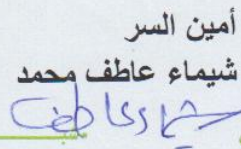 أمين السر
شيماء عاطف محمد
شيماء عاطف